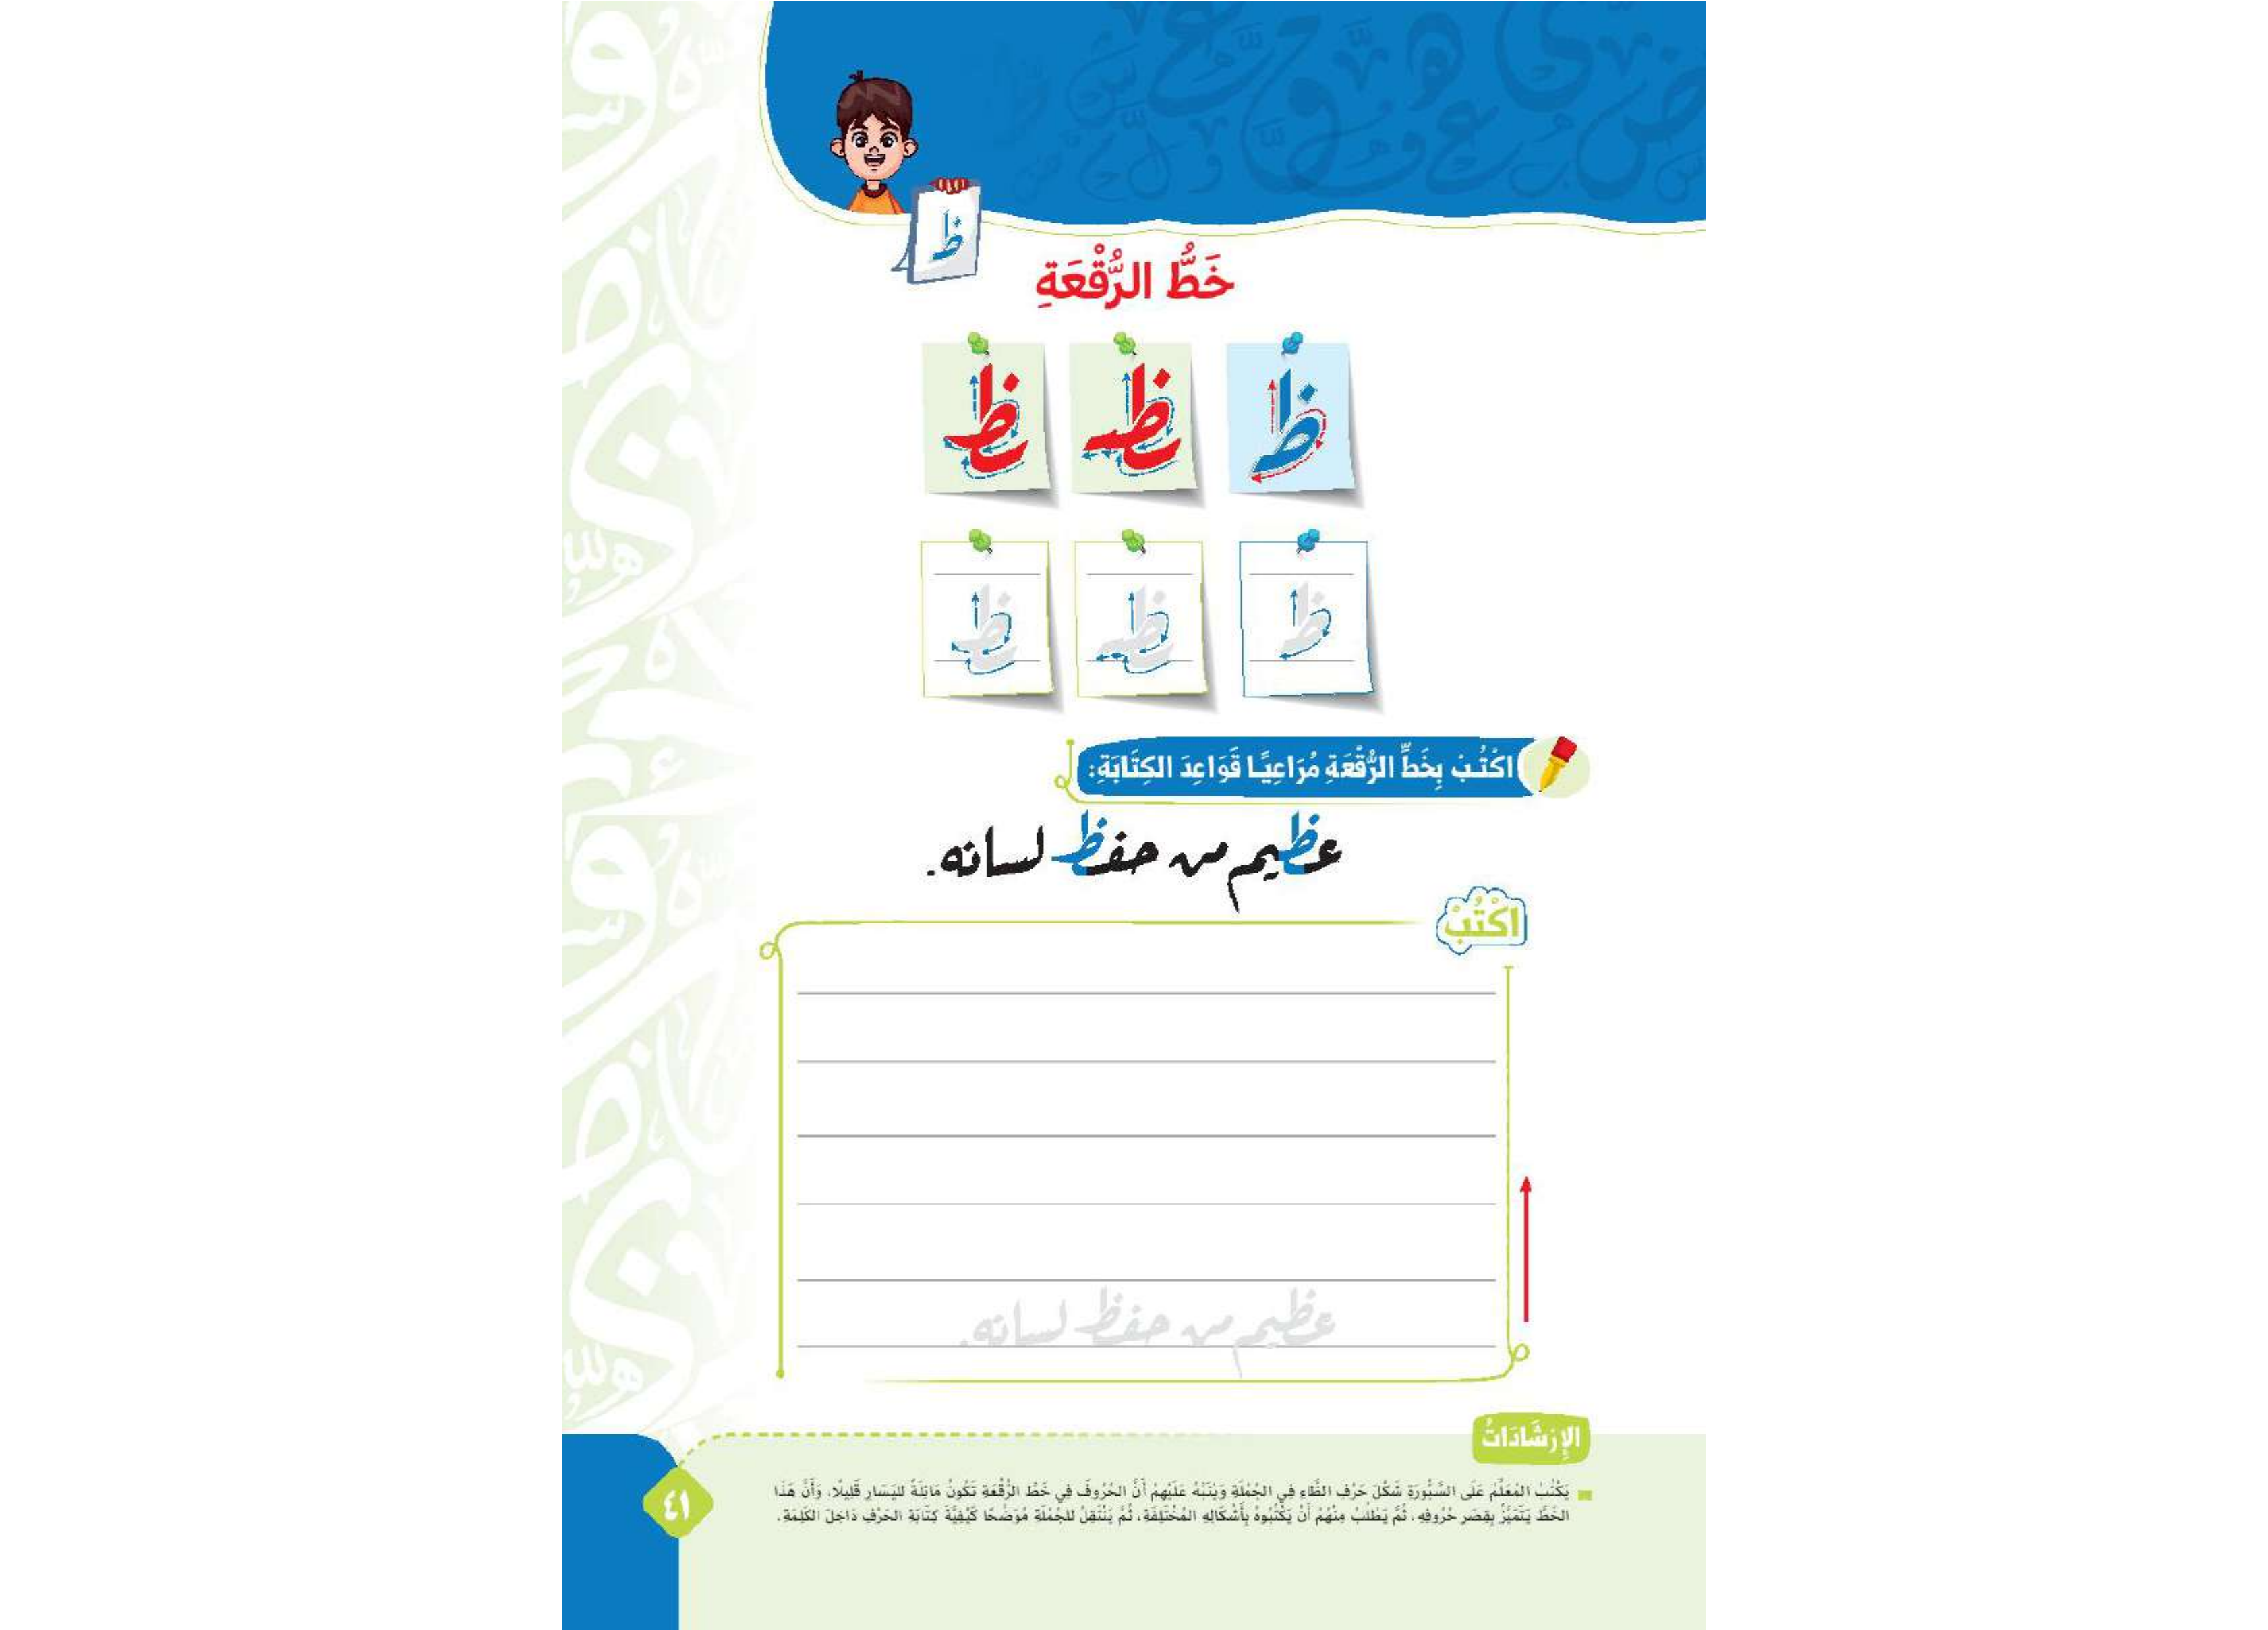 ظ
خَطُّ الرُّقْعَةِ
ظ ظ ظ
ظ ظ ظ
اكْتُبْ بِخَطِّ الرُّقْعَةِ مُرَاعِيًا قَوَاعِدَ الكِتَابَةِ:
عظيم من حفظ لسانه.
اكْتُبْ
عظيم من حفظ لسانه.
الإِرْشَادَاتُ
يَكْتُبُ المُعَلِّمُ عَلَى السَّبُّورَةِ شَكْلَ حَرْفِ الظَّاءِ فِي الجُمْلَةِ وَيُنَبِّهُ عَلَيْهِمْ أَنَّ الحُرُوفَ فِي خَطِّ الرُّقْعَةِ تَكُونُ مَائِلَةً لليَسَارِ قَلِيلًا، وَأَنَّ هَذَا
الخَطَّ يَتَمَيَّزُ بِقِصَرِ حُرُوفِهِ، ثُمَّ يَطْلُبُ مِنْهُمْ أَنْ يَكْتُبُوهُ بِأَشْكَالِهِ المُخْتَلِفَةِ، ثُمَّ يَنْتَقِلُ للجُمْلَةِ مُوَضِّحًا كَيْفِيَّةَ كِتَابَةِ الحَرْفِ دَاخِلَ الكَلِمَةِ.
٤١